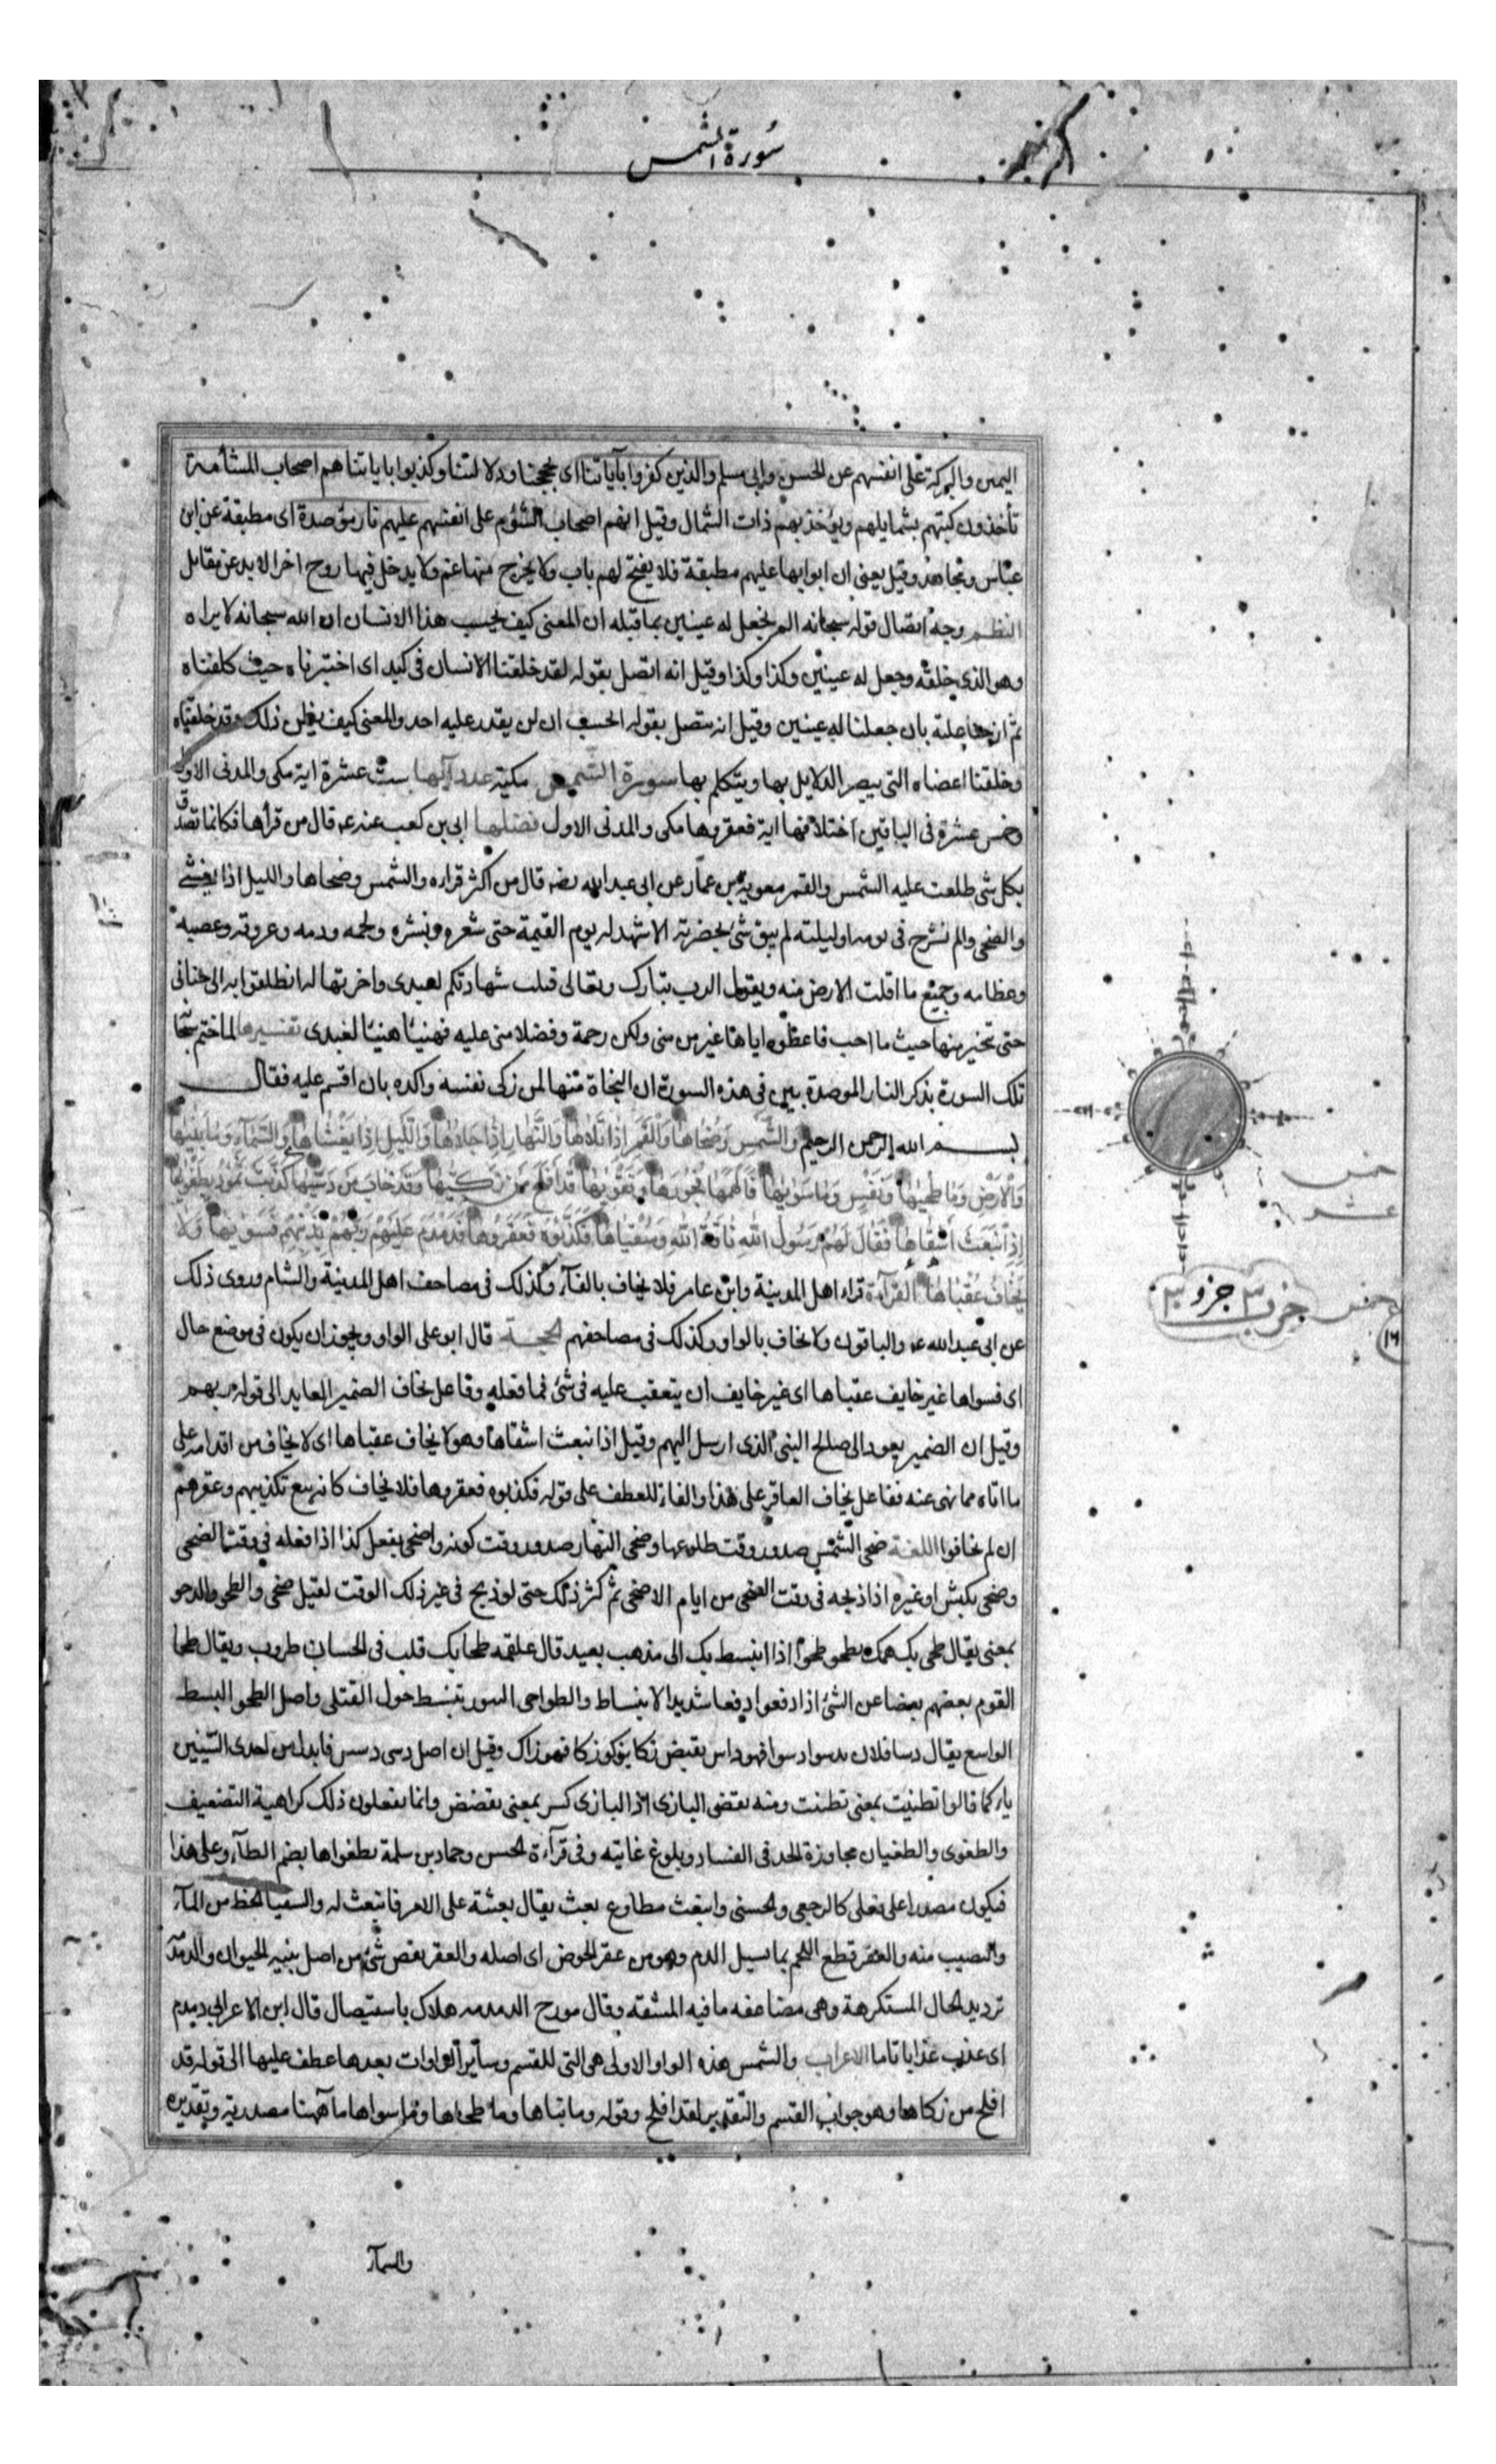 سورة الشمس
اليمن والبركة على انفسهم عن الحسن وابى مسلم والذين كفروا بآياتنا اى بحججنا ودلالتنا وكذبوا باياتنا هم اصحاب المشأمة
تأخذون كتبهم بشمايلهم ويؤخذ بهم ذات الشمال وقيل انهم اصحاب الشؤم على انفسهم عليهم نار مؤصدة اى مطبقة عن ابن
عباس ومجاهد وقيل يعنى ان ابوابها عليهم مطبقة فلا يفتح لهم باب ولا يخرج منها غم ولا يدخل فيها روح اخر الابد عن مقاتل
النظم وجه اتصال قوله سبحانه الم نجعل له عينين بما قبله ان المعنى كيف يحسب هذا الانسان ان الله سبحانه لا يراه
وهو الذى خلقه وجعل له عينين وكذا وكذا وقيل انه اتصل بقوله لقد خلقنا الانسان فى كبد اى اختبرناه حيث كلفناه
ثم ازحنا علته بان جعلنا له عينين وقيل انه يتصل بقوله ايحسب ان لن يقدر عليه احد والمعنى كيف يظن ذلك وقد خلقناه
وخلقنا اعضاه التى يبصر الدلايل بها ويتكلم بها سورة الشمس مكية عدد آيها ست عشرة اية مكى والمدنى الاول
وخمس عشرة فى الباقين اختلافها اية فعقروها مكى والمدنى الاول فضلها ابى بن كعب عنه ع قال من قرأها فكانما تصدق
بكل شئ طلعت عليه الشمس والقمر معوية بن عمار عن ابى عبد الله قال من اكثر قراءة والشمس وضحاها والليل اذا يغشى
والضحى والم نشرح فى يومه او ليلته لم يبق شئ بحضرته الا شهد له يوم القيمة حتى شعره وبشره ولحمه ودمه وعروقه وعصبه
وعظامه وجميع ما اقلت الارض منه ويقول الرب تبارك وتعالى قبلت شهادتكم لعبدى واجزتها له انطلقوا به الى جنانى
حتى تخير منها حيث ما احب فاعطوه اياها غير من منى ولكن رحمة وفضلا منى عليه فهنيئا هنيئا لعبدى تفسيرها لما ختم سبحانه
تلك السورة بذكر النار الموصدة بين فى هذه السورة ان النجاة منها لمن زكى نفسه واكده بان اقسم عليه فقال
بسم الله الرحمن الرحيم والشمس وضحاها والقمر اذا تلاها والنهار اذا جلاها والليل اذا يغشاها والسمآء وما بنيها
والارض وما طحيها ونفس وما سويها فالهمها فجورها وتقويها قد افلح من زكيها وقد خاب من دسيها كذبت ثمود بطغويها
اذ انبعث اشقاها فقال لهم رسول الله ناقة الله وسقياها فكذبوه فعقروها فدمدم عليهم ربهم بذنبهم فسويها ولا
يخاف عقباها القرآءة قراء اهل المدينة وابن عامر فلا يخاف بالفآء وكذلك فى مصاحف اهل المدينة والشام وروى ذلك
عن ابى عبد الله ع والباقون ولا يخاف بالواو وكذلك فى مصاحفهم الحجة قال ابو على الواو ويجوز ان يكون فى موضع حال
اى فسواها غير خايف عقباها اى غير خايف ان يتعقب عليه فى شئ مما فعله وفاعل يخاف الضمير العايد الى قوله ربهم
وقيل ان الضمير يعود الى صالح النبى الذى ارسل اليهم وقيل اذ انبعث اشقاها وهو لا يخاف عقباها اى لا يخاف من اقدامه على
ما اتاه مما نهى عنه ففاعل يخاف العاقر على هذا والفاء للعطف على قوله فكذبوه فعقروها فلا يخاف كانه يتبع تكذيبهم وعقرهم
ان لم يخافوا اللغة ضحى الشمس صدر وقت طلوعها وضحى النهار صدر وقت كونه واضحى يفعل كذا اذا فعله فى وقت الضحى
وضحى بكبش او غيره اذا ذبحه فى وقت الضحى من ايام الاضحى ثم كثر ذلك حتى لو ذبح فى غير ذلك الوقت لقيل ضحى والطحو والدحو
بمعنى يقال طحى بك همك يطحو طحوا اذا انبسط بك الى مذهب بعيد قال علقمه طحا بك قلب فى الحسان طروب ويقال طحا
القوم بعضهم بعضا عن الشئ اذا دفعوا دفعا شديدا الانبساط والطواحى النسور تنبسط حول القتلى واصل الطحو البسط
الواسع يقال دسا فلان يدسوا دسوا فهو داس نقيض زكا يزكو زكا فهو زاك وقيل ان اصل دسى دسس فابدل من احدى السينين
ياء كما قالوا تظنيت بمعنى تظننت ومنه تقضى البازى اذا البازى كسر بمعنى تقضض وانما يفعلون ذلك كراهية التضعيف
والطغوى والطغيان مجاوزة الحد فى الفساد وبلوغ غايته وفى قرآءة الحسن وحماد بن سلمة بطغواها بضم الطآء وعلى هذا
فيكون مصدرا على فعلى كالرجعى والحسنى وانبعث مطاوع بعث يقال بعثته على الامر فانبعث له والسقيا الحظ من المآء
والنصيب منه والعقر قطع اللحم بما يسيل الدم وهو من عقر الحوض اى اصله والعقر نقص شئ من اصل بنية الحيوان والدمدمة
ترديد الحال المستكرهة وهى مضاعفه ما فيه المشقه وقال مورج الدمدمه هلاك باستيصال قال ابن الاعرابى دمدم
اى عذب عذابا تاما الاعراب والشمس هذه الواو الاولى هى التى للقسم وسآير الواوات بعدها عطف عليها الى قوله قد
افلح من زكاها وهو جواب القسم والتقدير لقد افلح وقوله وما بناها وما طحاها وما سواها ما ههنا مصدرية وتقديره
والسمآء
خمس
عشر
حزب ٣ جزو ٣٠
١٦